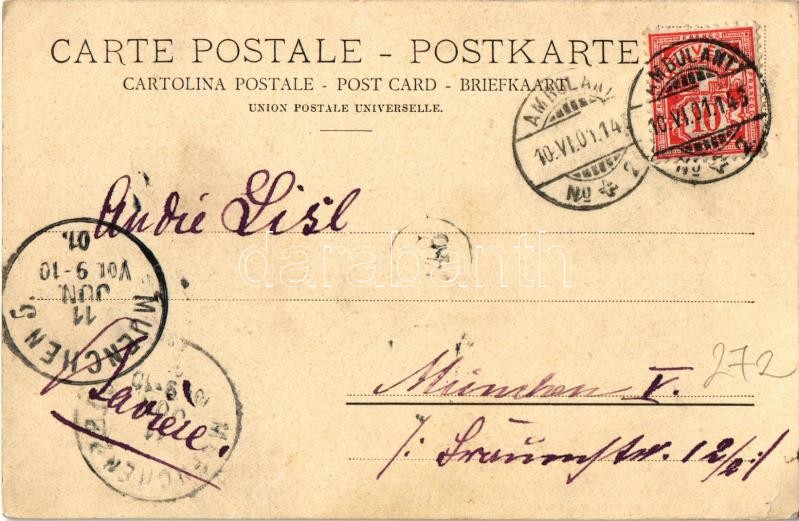 CARTE POSTALE - POSTKARTE
CARTOLINA POSTALE - POST CARD - BRIEFKAART
UNION POSTALE UNIVERSELLE.
FRANCO
10
AMBULANT
10.VI.01.14
No 2
AMBULANT
10.VI.01.143
No 2
An die Lisl
MUENCHEN 5.
11
JUN.
VOR.9-10
01.
darabanth
München V.
272
12/